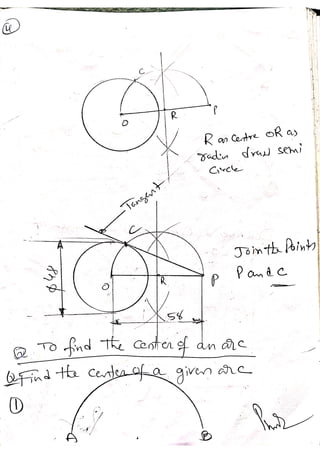 4
C
O
R
P
R as centre OR as
radiu draw semi
Circle
Tangent
C
Join the Points
P and C
O
R
P
ø 48
58
To find the center of an arc
Find the center of a given arc
1
A
B